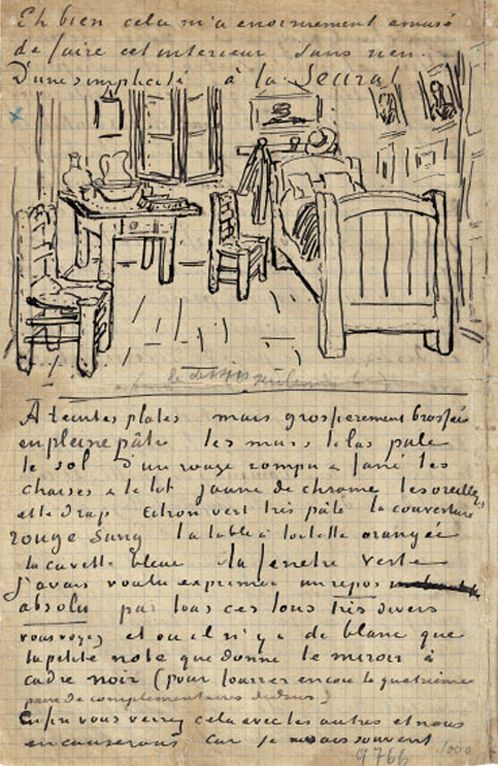 Eh bien cela m'a enormement amusé
de faire cet interieur sans rien.
D'une simplicité à la Seurat
A teintes plates mais grossierement brossées
en pleine pâte les murs lilas pale
le sol d'un rouge rompu & fané les
chaises & le lit jaune de chrome les oreillers
et le drap citron vert très pâle la couverture
rouge sang la table à toilette orangée
la cuvette bleue la fenetre verte
J'avais voulu exprimer un repos
absolu par tous ces tons très divers
vous voyez et ou il n'y a de blanc que
la petite note que donne le miroir à
cadre noir (pour fourrer encore la quatrieme
paire de complementaires dedans)
Enfin vous verrez cela avec les autres et nous
en causerons car je ne sais souvent
9766